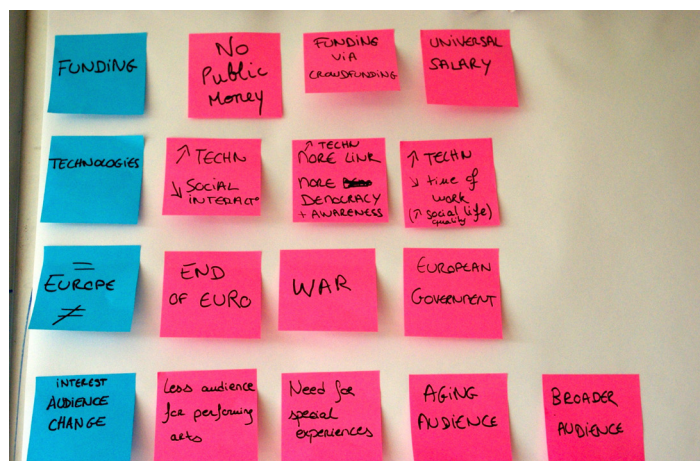 FUNDING
No
Public
Money
FUNDING
VIA
CROWDFUNDING
UNIVERSAL
SALARY
TECHNOLOGIES
↗ TECHN
↘ SOCIAL
INTERACT°
↗ TECHN
MORE LINK
MORE
DEMOCRACY
+ AWARENESS
↗ TECHN
↘ time of
work
(↗ social life)
quality
=
EUROPE
≠
END
OF EURO
WAR
EUROPEAN
GOVERNMENT
INTEREST
AUDIENCE
CHANGE
Less audience
for performing
arts
Need for
special
experiences
AGING
AUDIENCE
BROADER
AUDIENCE